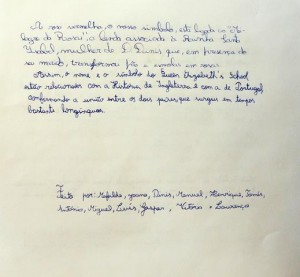 A rosa vermelha, o nosso símbolo, está ligada ao Mi-
lagre das Rosas, a lenda associada à Rainha Santa
Isabel, mulher de D. Dinis que, em presença do
seu marido, transforma pão e esmolas em rosas.
Assim, o nome e o símbolo do Queen Elizabeth's School
estão relacionados com a História de Inglaterra e com a de Portugal,
confirmando a união entre os dois países, que surgiu em tempos
bastante longínquos.
Feito por: Mafalda, Joana, Dinis, Manuel, Henrique, Tomás,
António, Miguel, Luís, Gaspar, Vitória e Lourenço